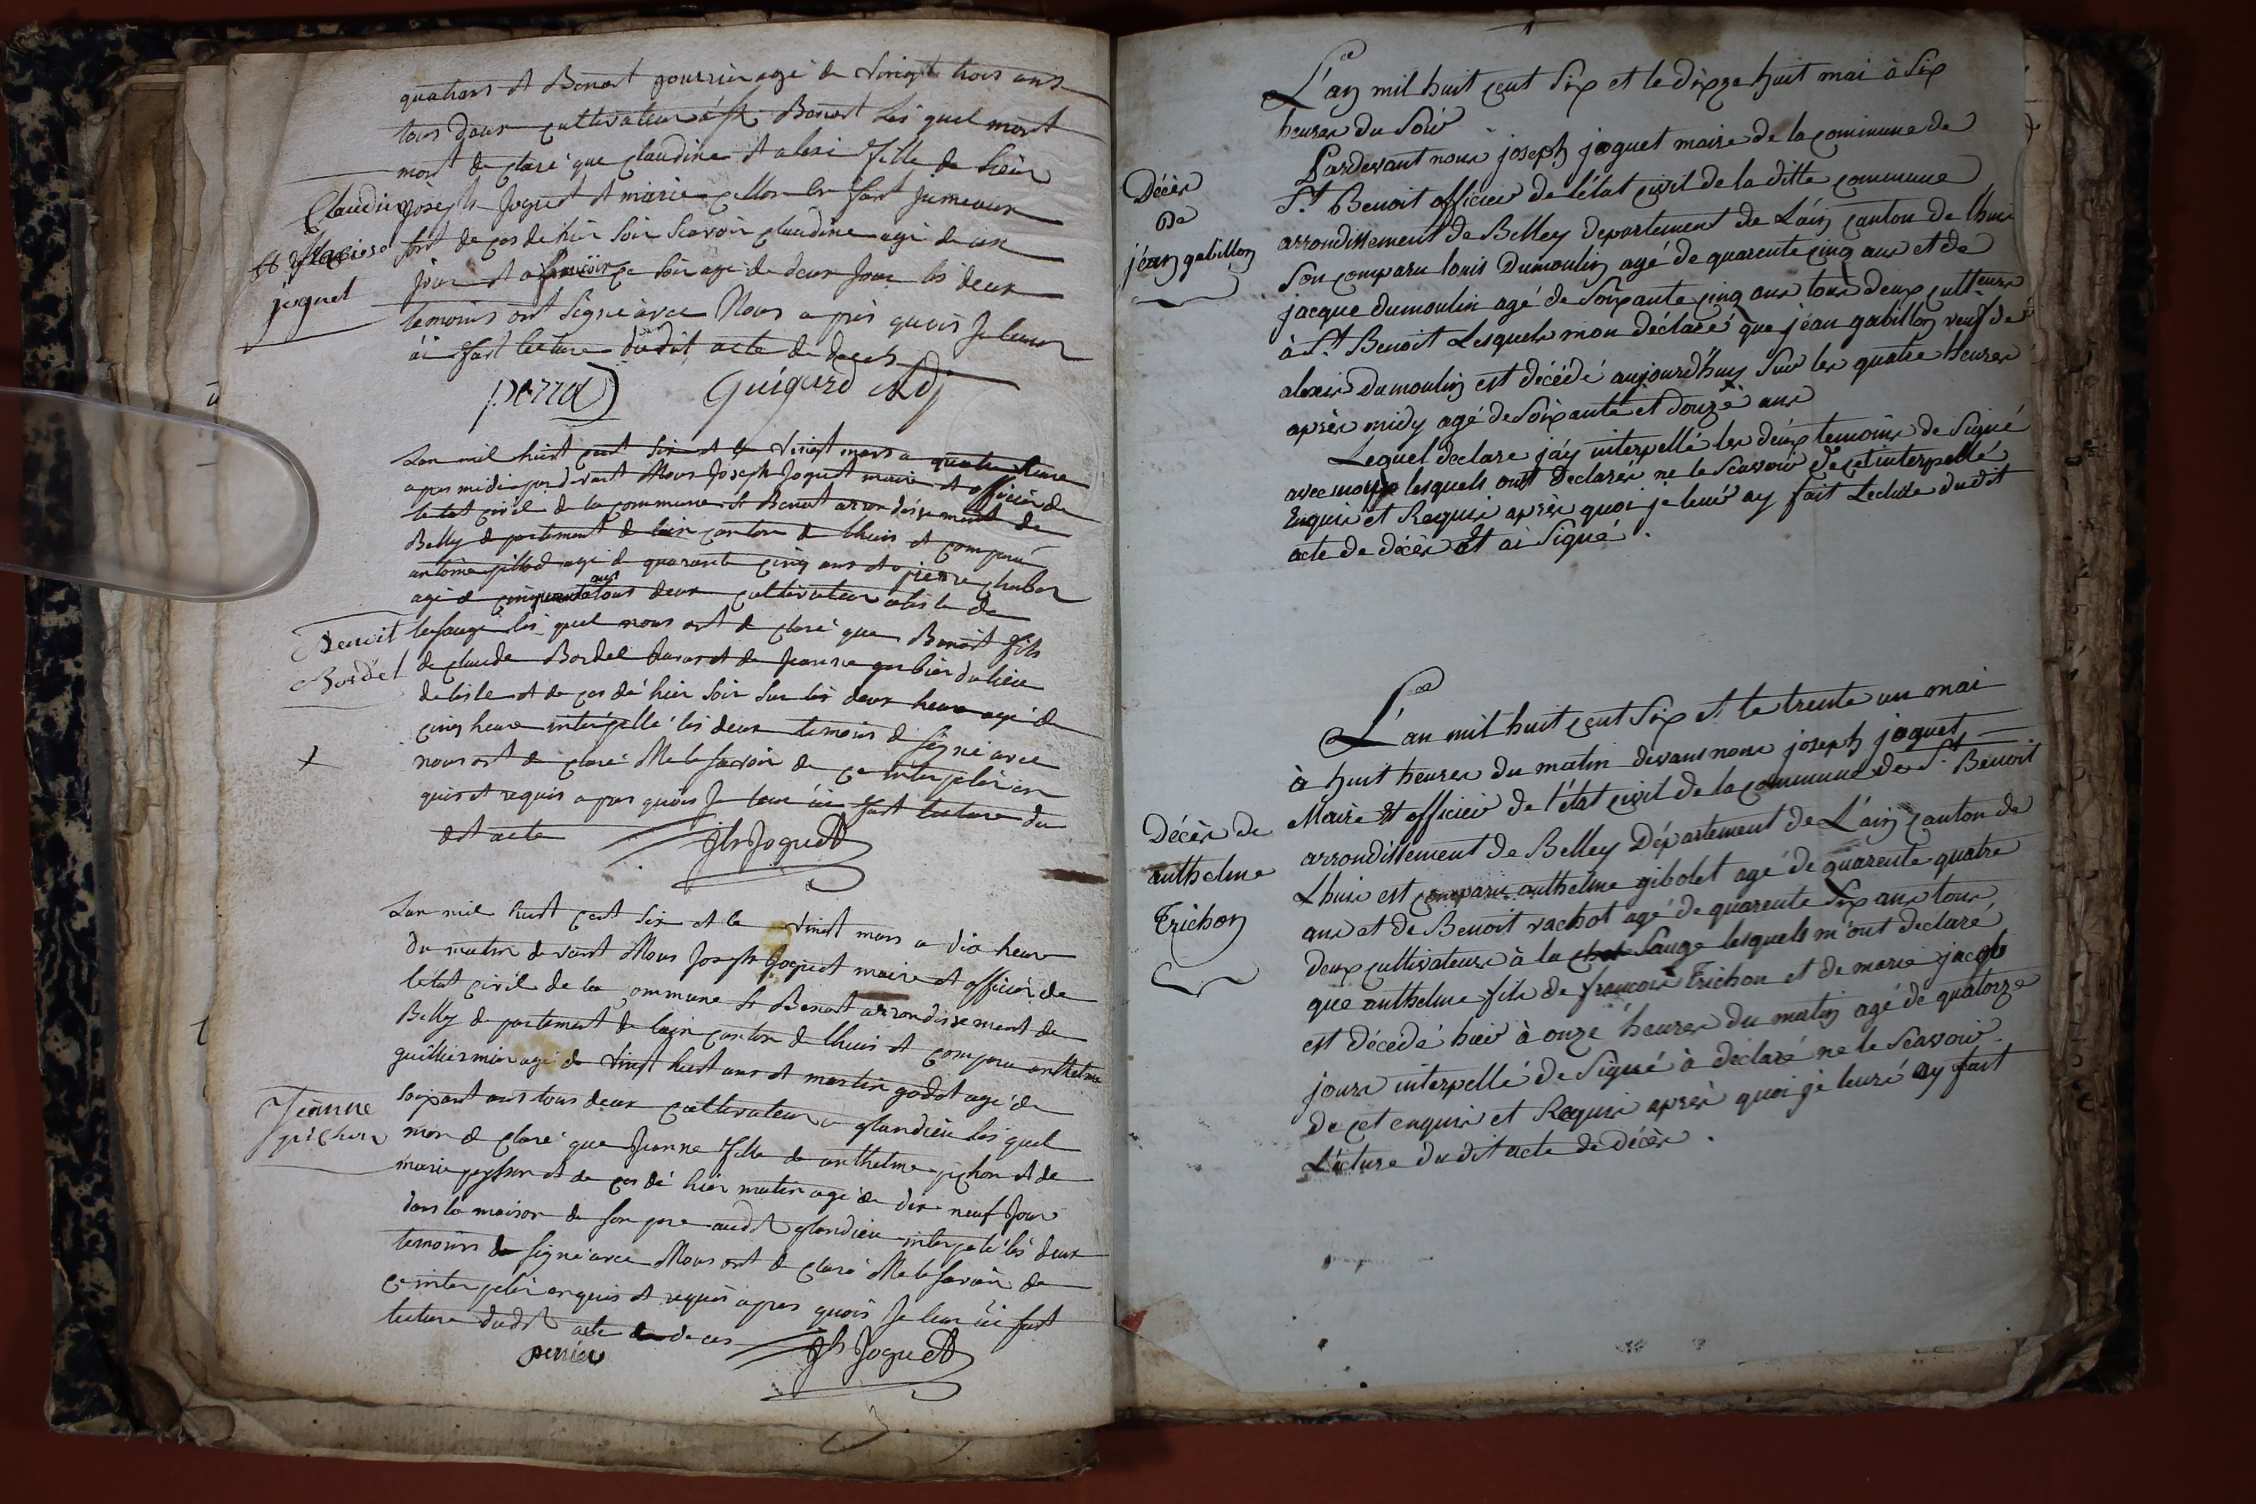 quatians et Benoit gourrier agé de vingt trois ans
tous deux cultivateur à St Benoit les quel mont
mont de claré que Claudine et alexi fille de sieur
Claudine
joseph Joguet et marie en fant Jumeaux
et
joguet
sont de ces dé hier soir scavoir claudine agé de six
jour et ce soir agé de deux Jour les deux
temoins ont signé avec Nous apres quois Je leur
ai fait lecture dudit acte de deces
perra Guigard Adj
Lan mil huit cent six et le vinct mars a quatre heure
apres midi par devant Nous Joseph Joguet maire et officier de
letat civil de la commune St Benoit arrondisse ment de
Belly departement de lain canton de lhuis et comparu
antoine pillod agé de quarante cinq ans et pierre
agé de cinquante ans tous deux cultivateur a lisle de
Benoit
Bordel
lasauge les quel nous ont de claré que Benoit fils
de claude Bordel et de Jeanne du lieu
de lisle et de ces dé hier soir sur les deux heure agé de
cinq heure interpellé les deux temoins de signé avec
nous ont de claré Ne le savoir de ce interpeler en
quis et requis apres quois Je leur ai fait lecture du
dit acte Jh Joguet
Lan mil huit cent six et le vinct mars a dix heure
du matin devant Nous Joseph Joguet maire et officier de
letat civil de la commune St Benoit arrondisse ment de
Belly departement de lain canton de lhuis et comparu anthelme
guilliermin agé de vinct huit ans et martin godet agé de
soixant ans tous deux cultivateur a glandieu les quel
Jeanne
pichon
mon de claré que Jeanne fille de anthelme pichon et de
marie peysson et de ces dé hier matin agé de dix neuf Jour
dans la maison de son pere audit glandieu interpelé les deux
temoins de signé avec Nous ont de claré Ne le savoir de
ce interpeler enquis et requis apres quois Je leur ai fait
lecture dudit acte de deces Jh Joguet
perrier
L'an mil huit cent Six et le dixze huit mai à Six
heures du Soir
Pardevant nous joseph joguet maire de la commune de
Décès
De
jéan gabillon
St. Benoit officier de l'état civil de la ditte commune
arrondissement de Belley departement de L'ain canton de lhuis
Son comparu louis Dumoulin agé de quarente cinq ans et de
jacque dumoulin agé de Soixante cinq ans tous deux cultteurs
à St. Benoit Lesquels mon déclaré que jéan gabillon veuf de
alexis Dumoulin est décédé aujourd'huy Sur les quatre heures
après midy agé de Soixante et douze ans
Lequel declare j'ay interpellé les deux temoins de Signé
avec moy lesquels ont Declarés ne le Scavoir de cet interpellé
Enquis et Requis après quoi je leur ay fait Lecture dudit
acte de décès Et ai Signé.
L'an mil huit cent Six et le trente un mai
à huit heures du matin devant nous joseph joguet
Maire Et officier de l'état civil de la commune de St. Benoit
Décès de
anthelme
Trichon
arrondissement de Belley Département de L'ain canton de
Lhuis est comparu anthelme gibolet agé de quarente quatre
ans et de Benoit vachot agé de quarente Six ans tous
deux cultivateurs à la Sauge lesquels m'ont declaré
que anthelme fils de francois Trichon et de marie jacob
est décédé hier à onze heures du matin agé de quatorze
jours interpellé de Signé à déclaré ne le Scavoir
de cet enquis et Requis après quoi je leurs ay fait
Lecture du dit acte de Décès.